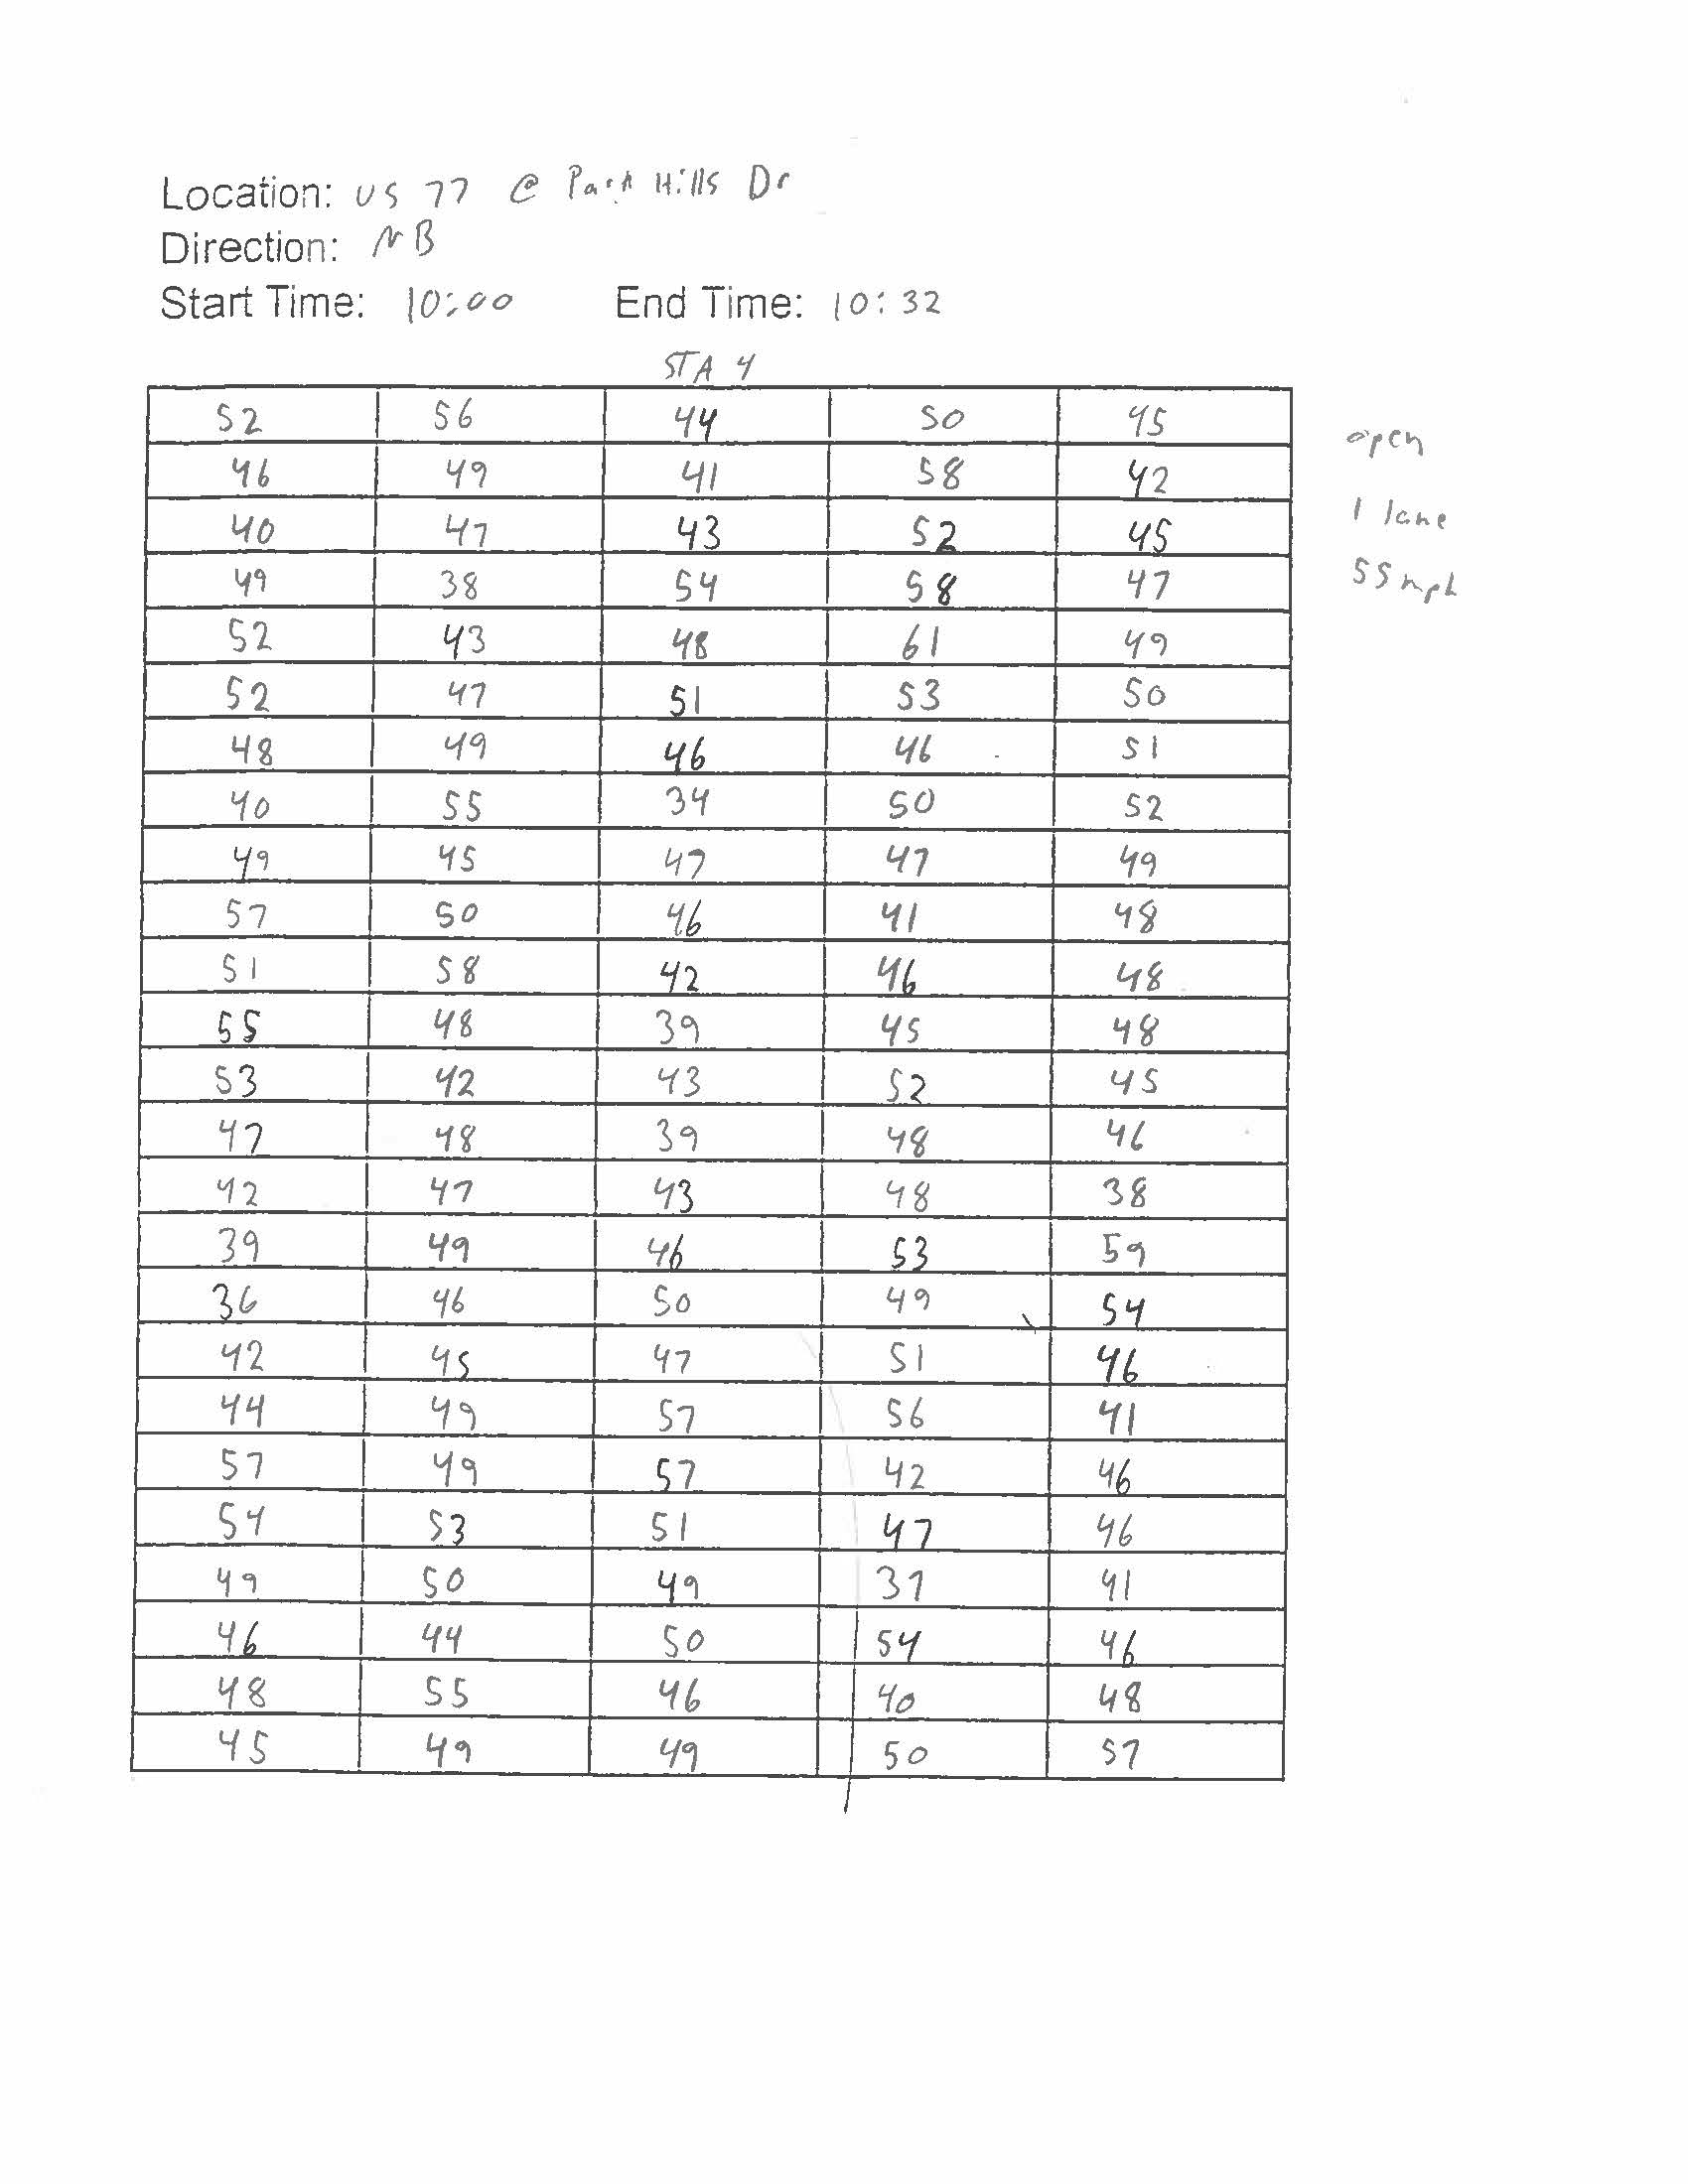 Location: US 77 @ Park Hills Dr
Direction: NB
Start Time: 10:00 End Time: 10:32
STA 4
52 56 44 50 45
open
46 49 41 58 42
1 lane
40 47 43 52 45
49 38 54 58 47
55 mph
52 43 48 61 49
52 47 51 53 50
48 49 46 46 51
40 55 34 50 52
49 45 47 47 49
57 50 46 41 48
51 58 42 46 48
55 48 39 45 48
53 42 43 52 45
47 48 39 48 46
42 47 43 48 38
39 49 46 53 59
36 46 50 49 54
42 45 47 51 46
44 49 57 56 41
57 49 57 42 46
54 53 51 47 46
49 50 49 37 41
46 44 50 54 46
48 55 46 40 48
45 49 49 50 57